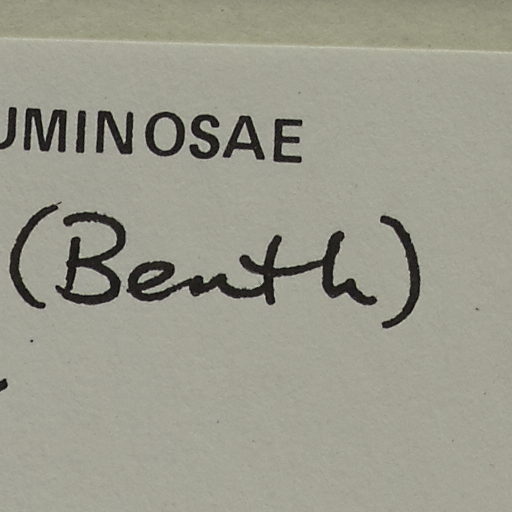 UMINOSAE
(Benth)